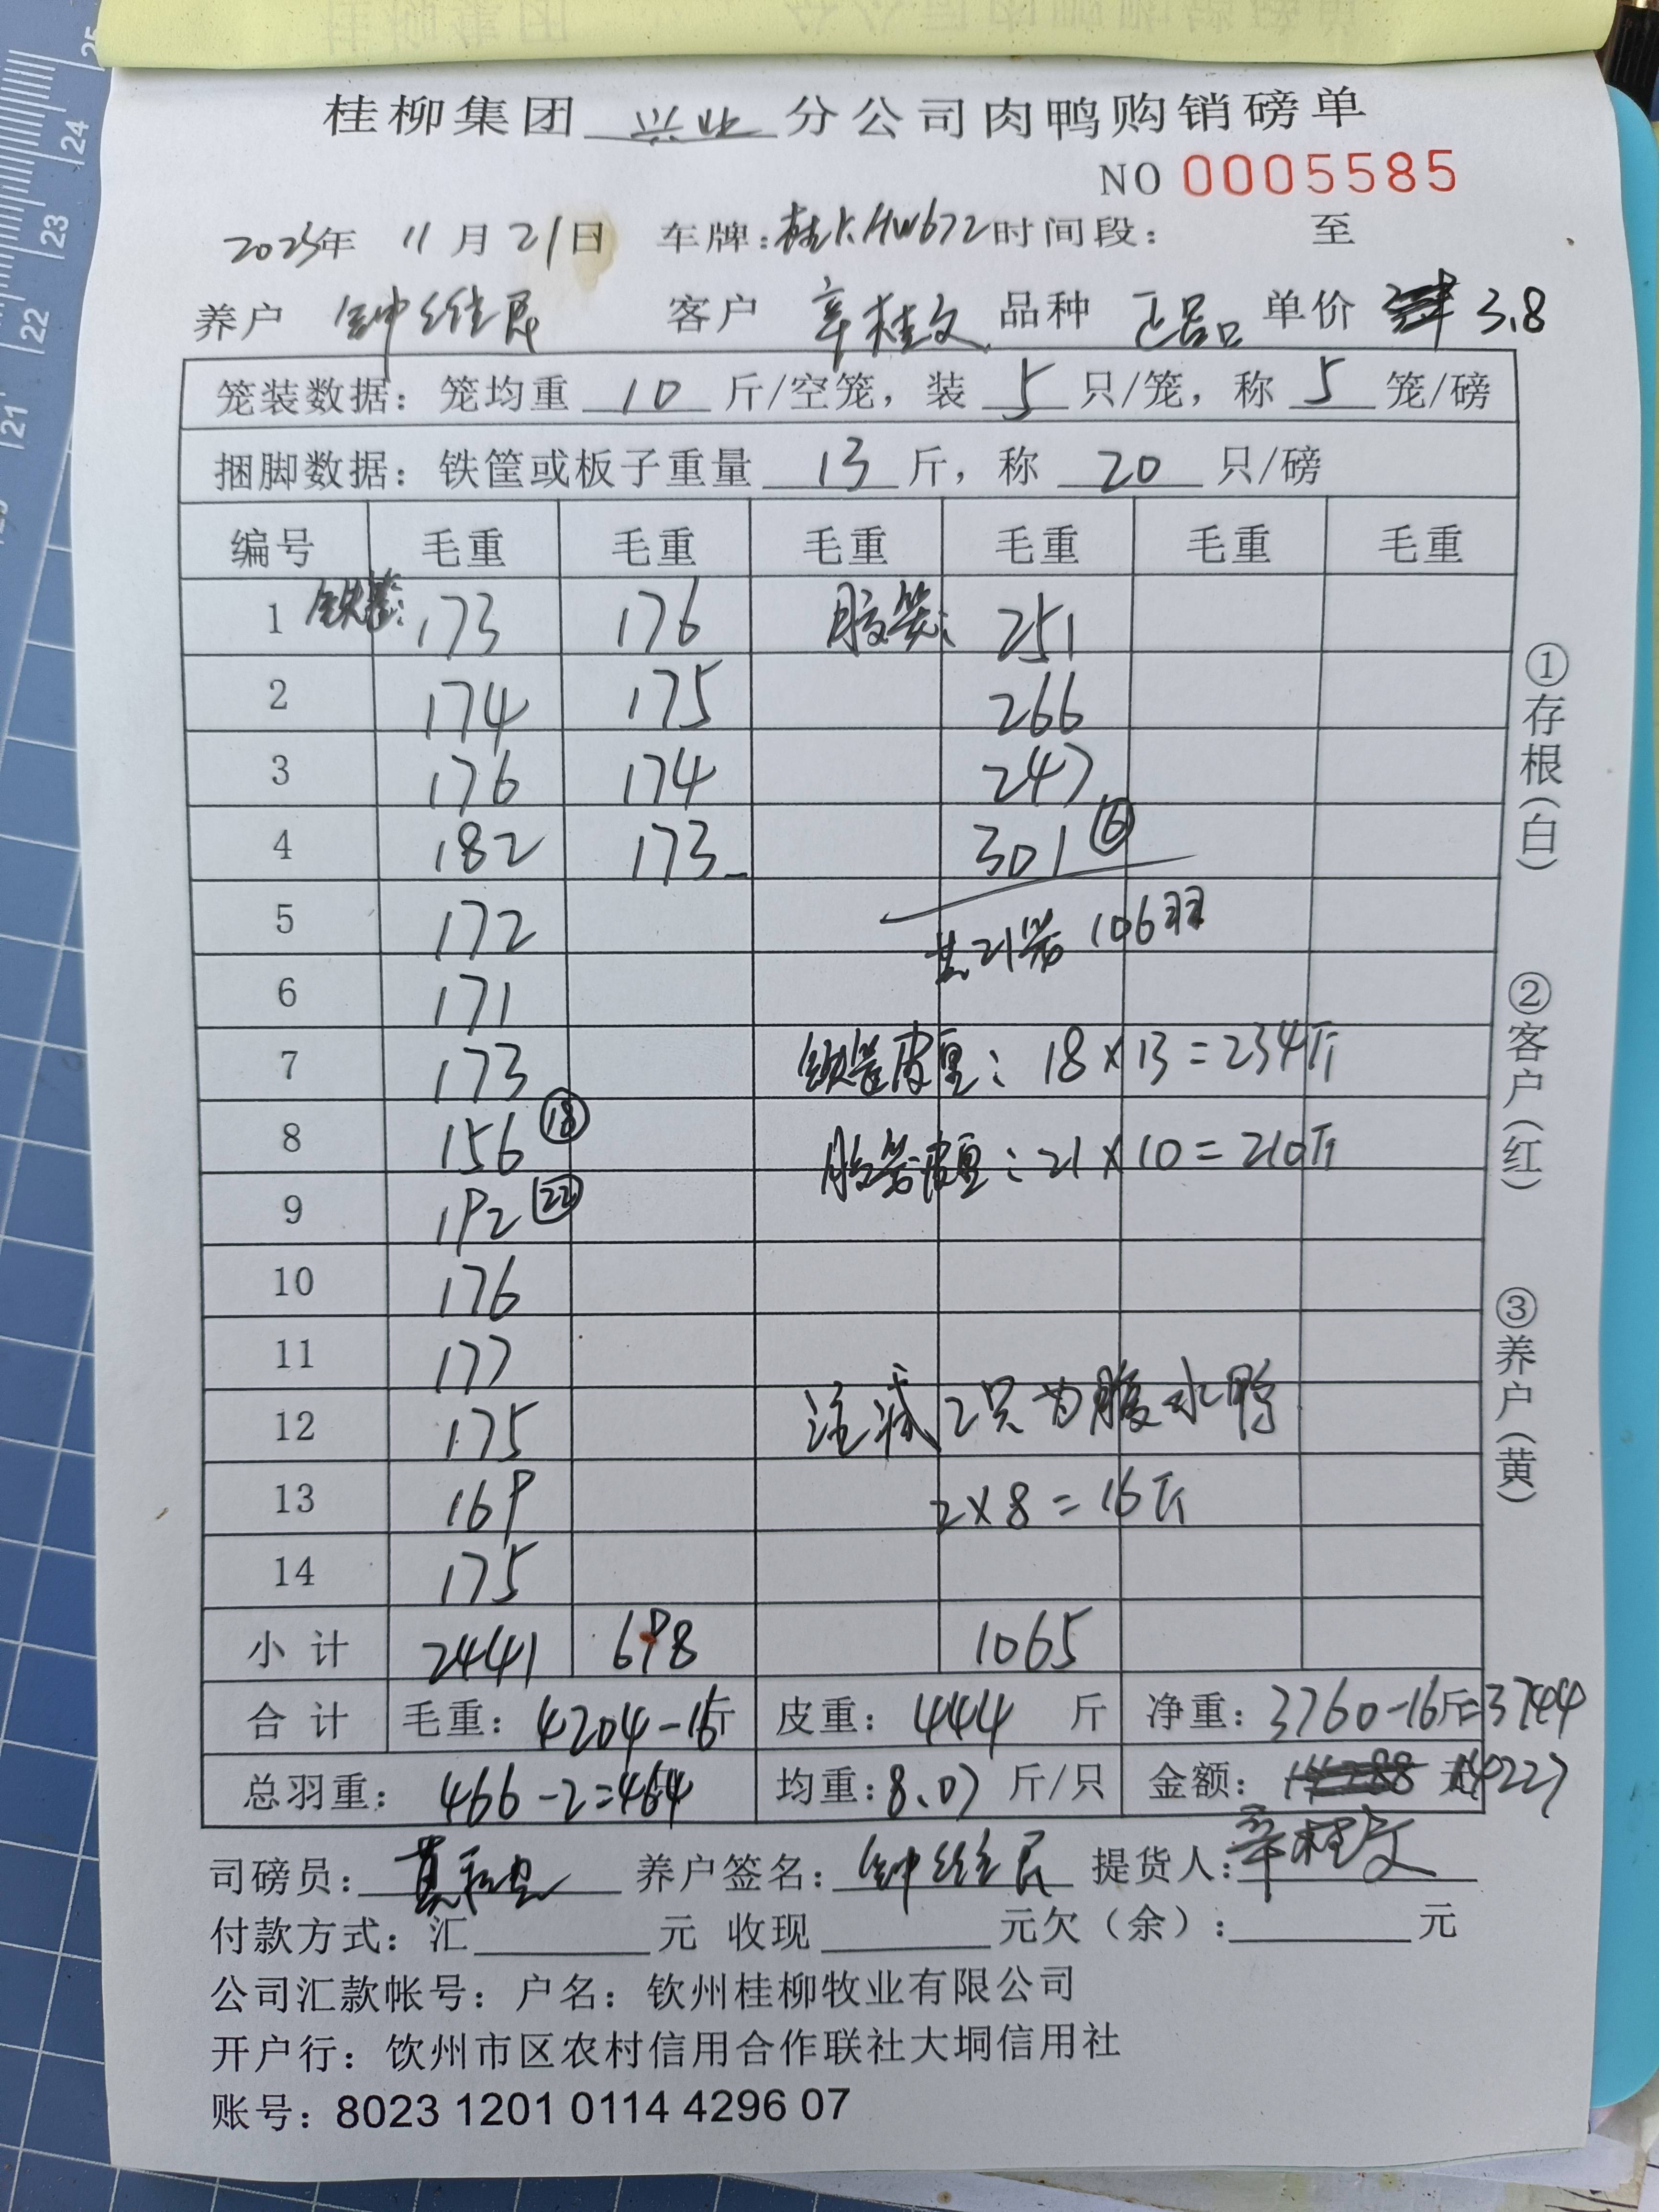 桂柳集团 兴业 分公司肉鸭购销磅单
NO 0005585
2023年 11月21日 车牌:桂K·HW672 时间段: 至
养户 钟维民 客户 辛桂文 品种 正品 单价 3.8
笼装数据: 笼均重 10 斤/空笼, 装 5 只/笼, 称 5 笼/磅
捆脚数据: 铁筐或板子重量 13 斤, 称 20 只/磅
编号 毛重 毛重 毛重 毛重 毛重 毛重
1 铁筐: 173 176 胶笼: 251
2 174 175 266
3 176 174 247
4 182 173 301 ⑥
5 172 共21笼 106羽
6 171
7 173 铁筐皮重: 18×13=234斤
8 156 ⑱ 胶笼皮重: 21×10=210斤
9 192 22
10 176
11 177
12 175 注减2只为腹水鸭
13 169 2×8=16斤
14 175
小计 2441 698 1065
合计 毛重: 4204-16斤 皮重: 444 斤 净重: 3760-16斤=3744
总羽重: 466-2=464 均重: 8.07 斤/只 金额: 14227
司磅员: 养户签名: 钟维民 提货人: 辛桂文
付款方式: 汇 元 收现 元欠(余): 元
公司汇款帐号: 户名: 钦州桂柳牧业有限公司
开户行: 钦州市区农村信用合作联社大垌信用社
账号: 8023 1201 0114 4296 07
①存根(白)
②客户(红)
③养户(黄)
25
24
23
22
21